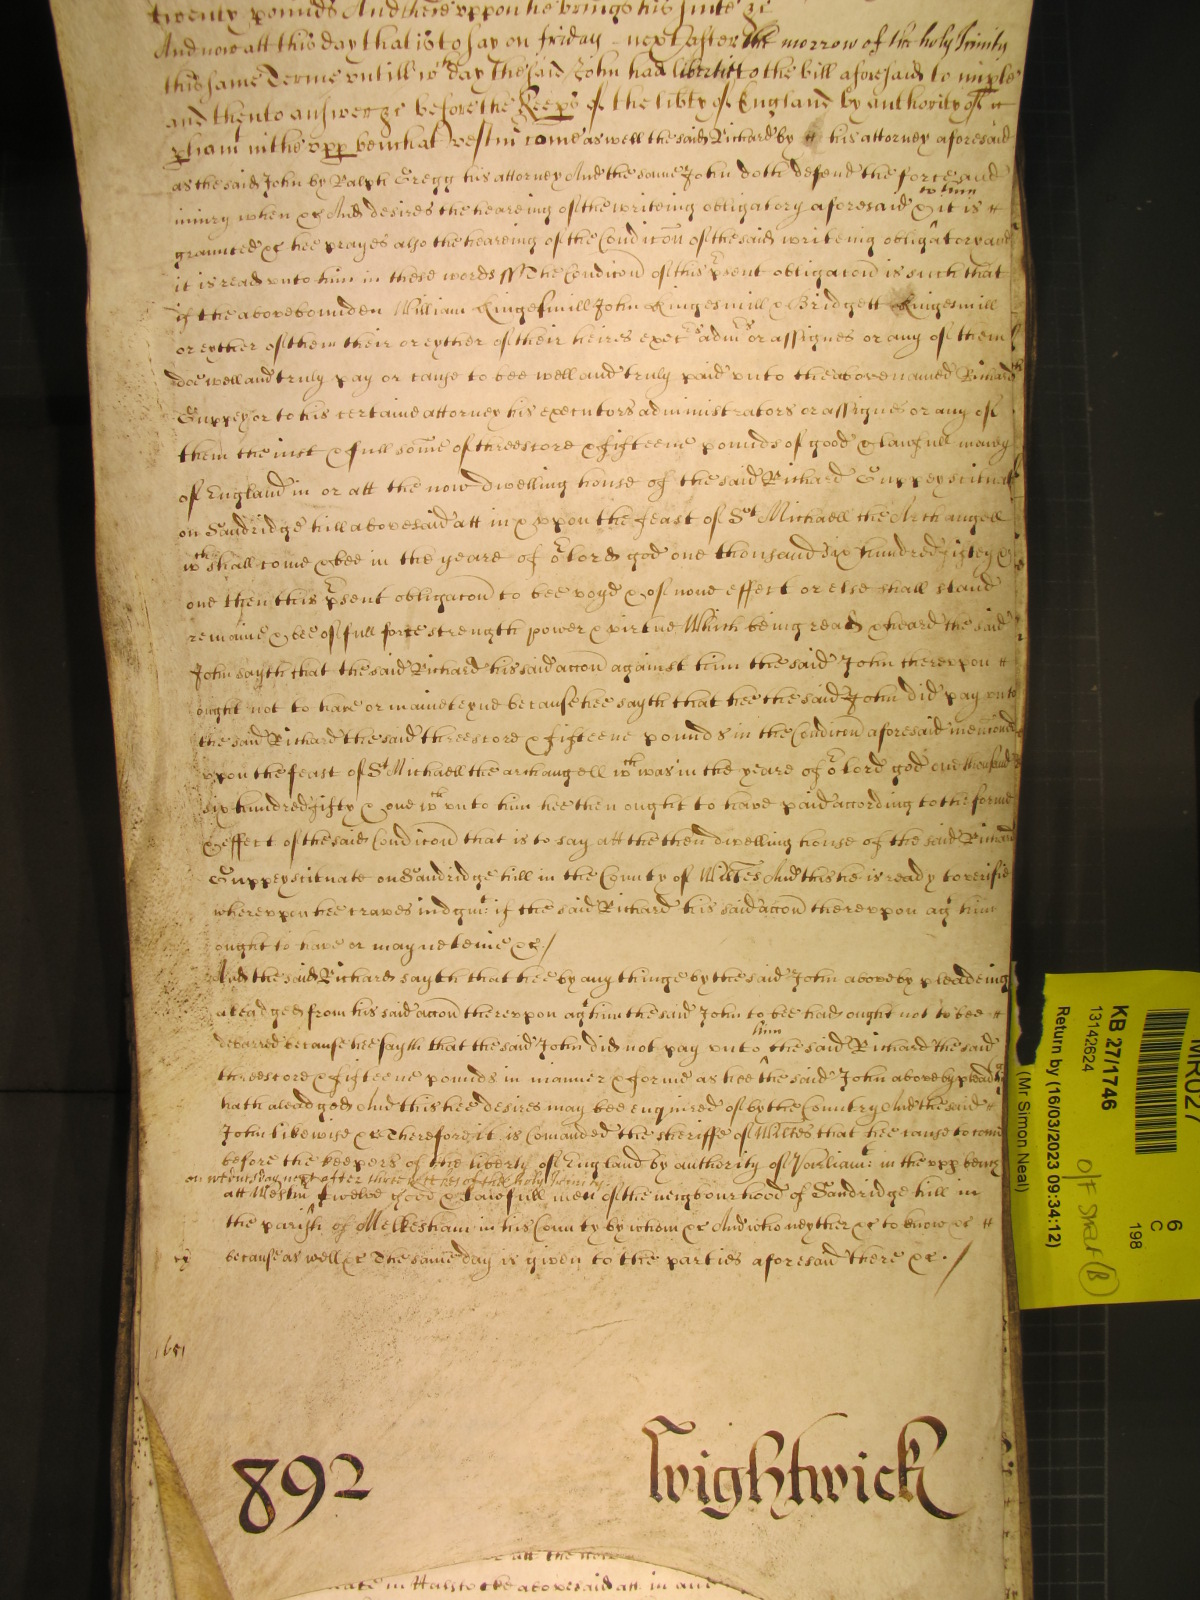 twenty pounds And thereuppon he brings his suite &c
And now att this day that is to say on friday next after the morrow of the holy Trinity
this same Terme untill wch day the said John had liberty to the bill aforesaid to imple
and then to answer &c before the Keeps of the libty of England by authority of
pliamt in the upp bench at Westm come as well the said Richard by his attorney aforesaid
as the said John by Ralph Gregg his attorney And the same John doth defend the force and
iniury when &c And desires the heareing of the writeing obligatory aforesaid & it is
to him
graunted &c hee prayes also the heareing of the Condicōn of the said writeing obligatory and
it is read unto him in these words ss The Condicōn of this psent obligacōn is such that
if the abovebounden William Kingesmill John Kingesmill & Bridgett Kingesmill
or eyther of them their or eyther of their heires exectrs admrs or assignes or any of them
doe well and truly pay or cause to bee well and truly paid unto the above named Richard
Guppey or to his certaine attorney his executors administrators or assignes or any of
them the iust & full some of threescore & fifteene pounds of good & lawfull money
of England in or att the now dwelling house of the said Richard Guppey scituate
on Sandridge hill abovesaid att in & uppon the feast of St Michaell the Archangell
wch shall come & bee in the yeare of or lord god one thousand six hundred fiftey &
one then this psent obligacōn to bee voyd & of none effect or else shall stand
remaine & bee of full force strength power & virtue, Which being read & heard the said
John sayth that the said Richard his said accōn against him the said John thereuppon
ought not to have or mainteyne because hee sayth that hee the said John did pay unto
the said Richard the said threescore & fifteene pounds in the Condicōn aforesaid mencōned
uppon the feast of St Michaell the archangell wch was in the yeare of or lord god one thousand
six hundred fifty & one wch unto him hee then ought to have paid according to the forme
& effect of the said Condicōn that is to say att the then dwelling house of the said Richard
Guppey scituate on Sandridge hill in the County of Wiltes And this hee is ready to verifie
whereuppon hee craves iudgmt: if the said Richard his said accōn thereuppon agt him
ought to have or mayneteine &c./
And the said Richard sayth that hee by any thinge by the said John above by pleadeing
aleadged from his said accōn thereuppon agt him the said John to bee had ought not to bee
debarred because hee sayth that the said John did not pay unto the said Richard the said
him
threescore & fifteene pounds in manner & forme as hee the said John above by pleading
hath aleadged And this hee desires may bee enquired of by the Country And the said
John likewise &c Therefore it is comanded the sheriffe of Wiltes that hee cause to come
before the keepers of the liberty of England by authority of Parliamt: in the upp bench
on wednesday next after three weekes of the holy Trinity
att Westm twelve good & lawfull men of the neighbourhood of Sandridge hill in
the parish of Melkesham in his County by whom &c And who neyther &c to know &c
because as well &c The same day is given to the parties aforesaid there &c. /
1651
892 Wightwick
att the now
in abovesaid att in and
KB 27/1746
13142624
Return by (16/03/2023 09:34:12)
(Mr Simon Neal)
6
C
198
MR027